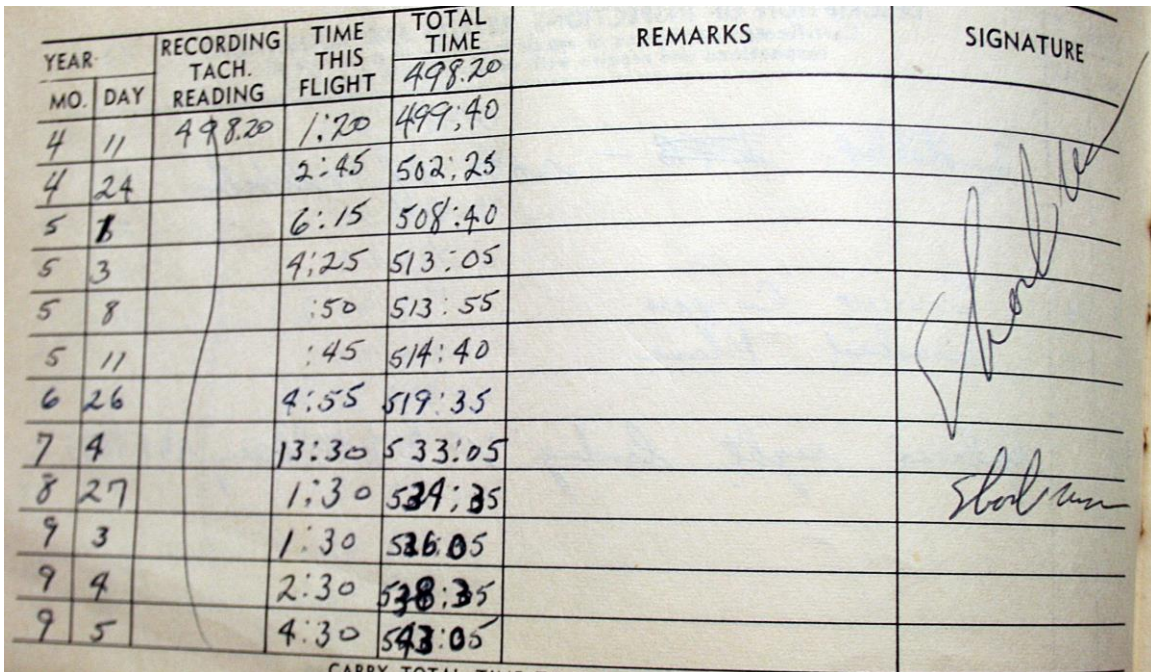 YEAR
RECORDING TACH. READING
TIME THIS FLIGHT
TOTAL TIME
REMARKS
SIGNATURE
MO. DAY 498.20
4 11 498.20 1:20 499:40
4 24 2:45 502:25
5 6:15 508:40
5 3 4:25 513:05
5 8 :50 513:55
5 11 :45 514:40
6 26 4:55 519:35
7 4 13:30 533:05
8 27 1:30 534:35
9 3 1:30 536:05
9 4 2:30 538:35
9 5 4:30 543:05
CARRY TOTAL TIME